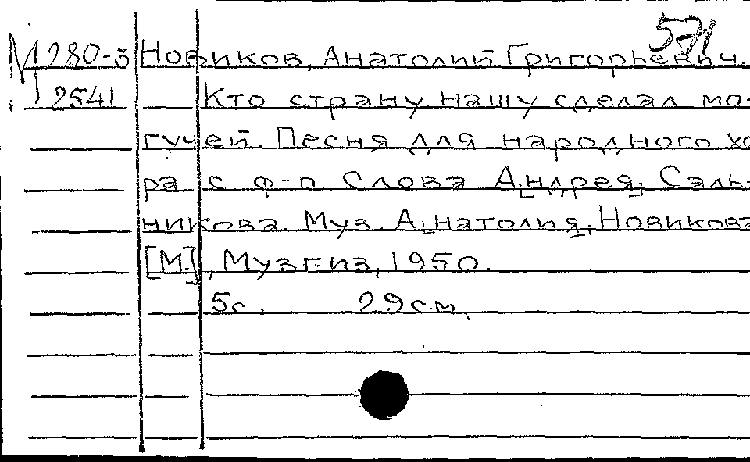 571
М 280-5 Новиков, Анатолий Григорьевич.
2541 Кто страну нашу сделал мо-
гучей. Песня для народного хо-
ра с ф-п Слова Андрея Саль-
никова. Муз. Анатолия Новикова
[М.], Музгиз, 1950.
5с. 29см.